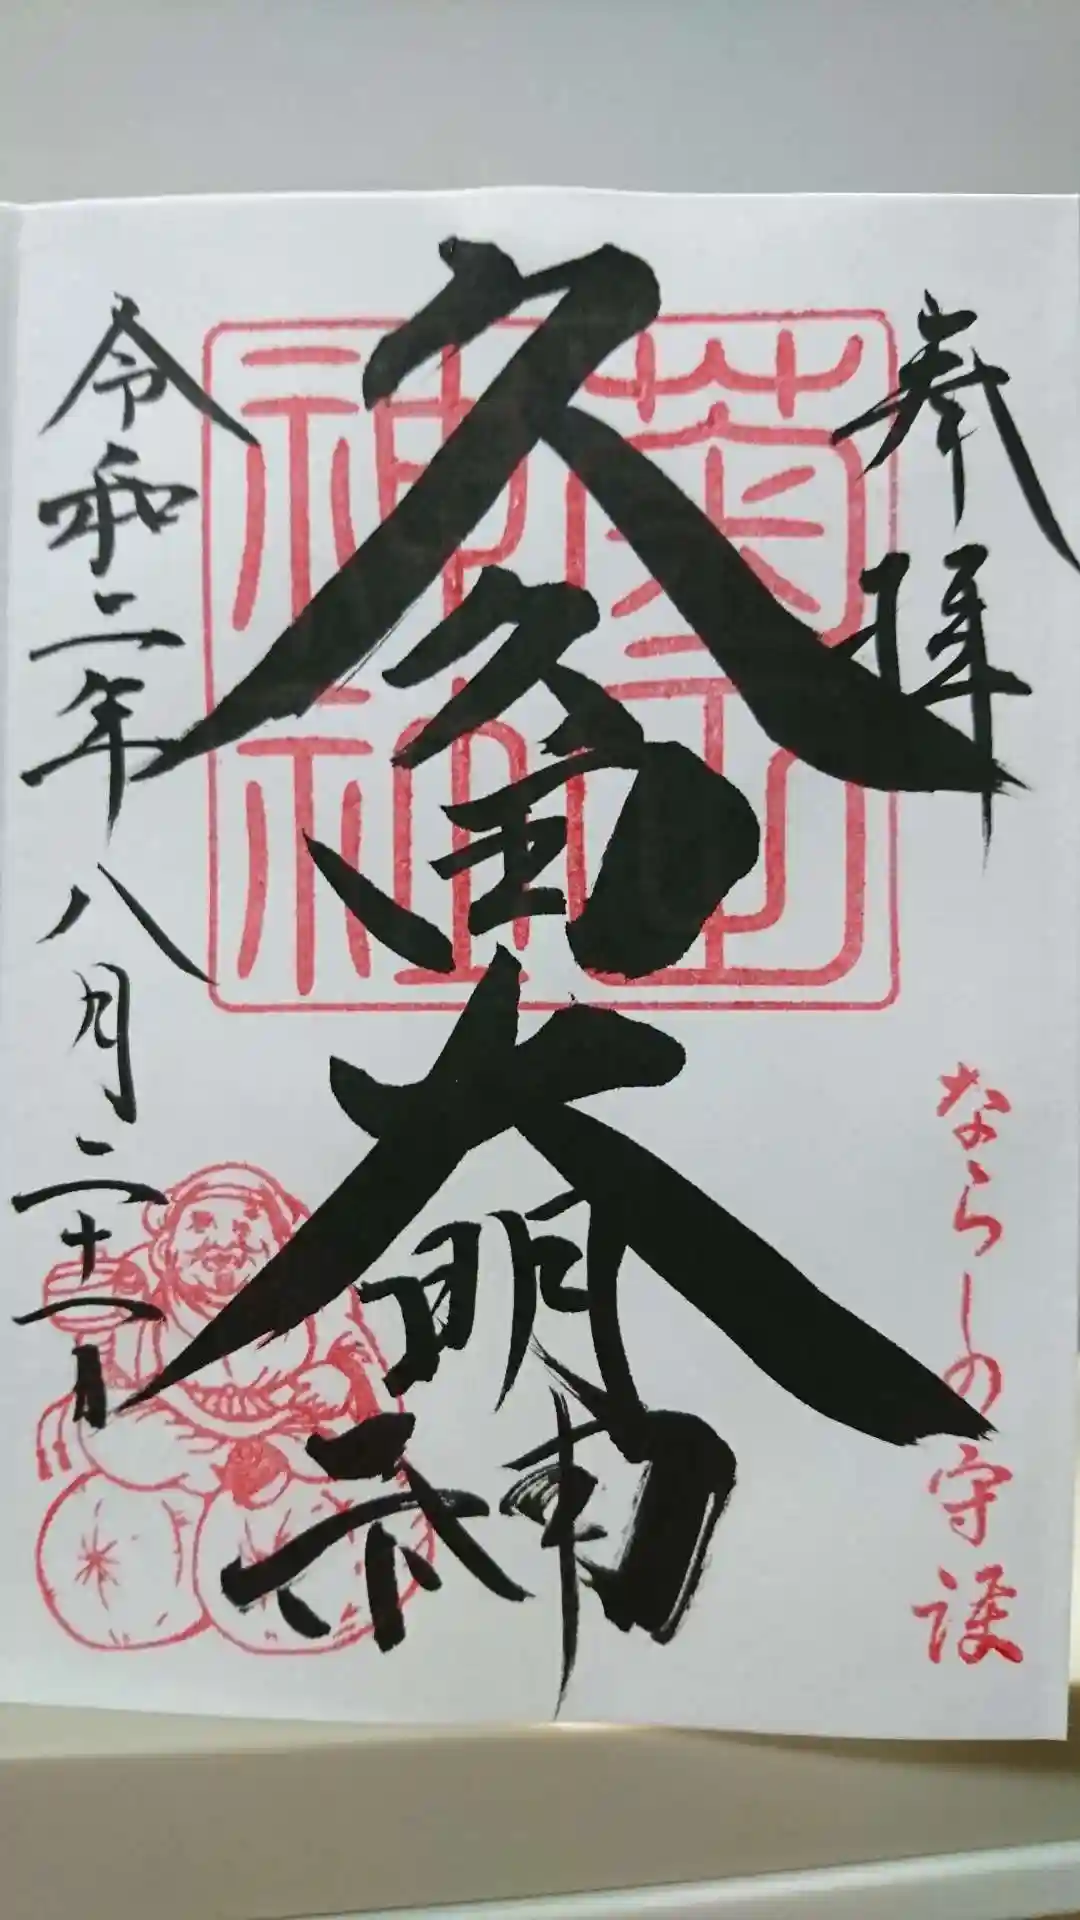 奉拝
久久田大明神
令和二年八月二十一日
ならしの守護
菊田
神社